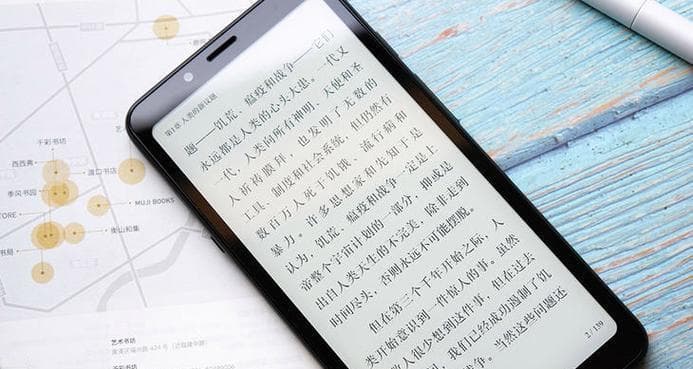 唐宁书店
千彩书坊
西西弗
渡口书店
季风书园
MUJI BOOKS
STORE
衡山和集
书局
艺术书坊
黄浦区福州路 424 号（近福建中路）
第1章 人类的新议题
题——饥荒、瘟疫和战争——它们
永远都是人类的心头大患。一代又
一代，人类向所有神明、天使和圣
人祈祷膜拜，也发明了无数的
工具、制度和社会系统，但仍然有
数百万人死于饥饿、流行病和
暴力。许多思想家和先知于是
认为，饥荒、瘟疫和战争一定是上
帝整个宇宙计划的一部分，抑或是
出自人类天生的不完美，除非走到
时间尽头，否则永远不可能摆脱。
但在第三个千年开始之际，人
类开始意识到一件惊人的事。虽然
人很少想到这件事，但在过去
，我们已经成功遏制了饥
战争。当然这些问题还
2 / 139